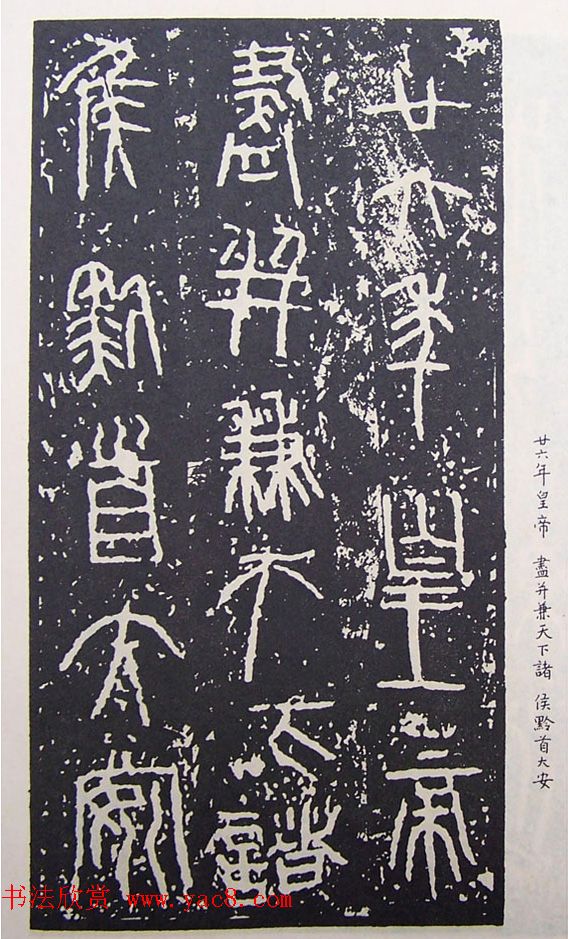 廿六年皇帝
盡并兼天下諸
侯黔首大安
廿六年皇帝 盡并兼天下諸 侯黔首大安
书法欣赏 www.yac8.com